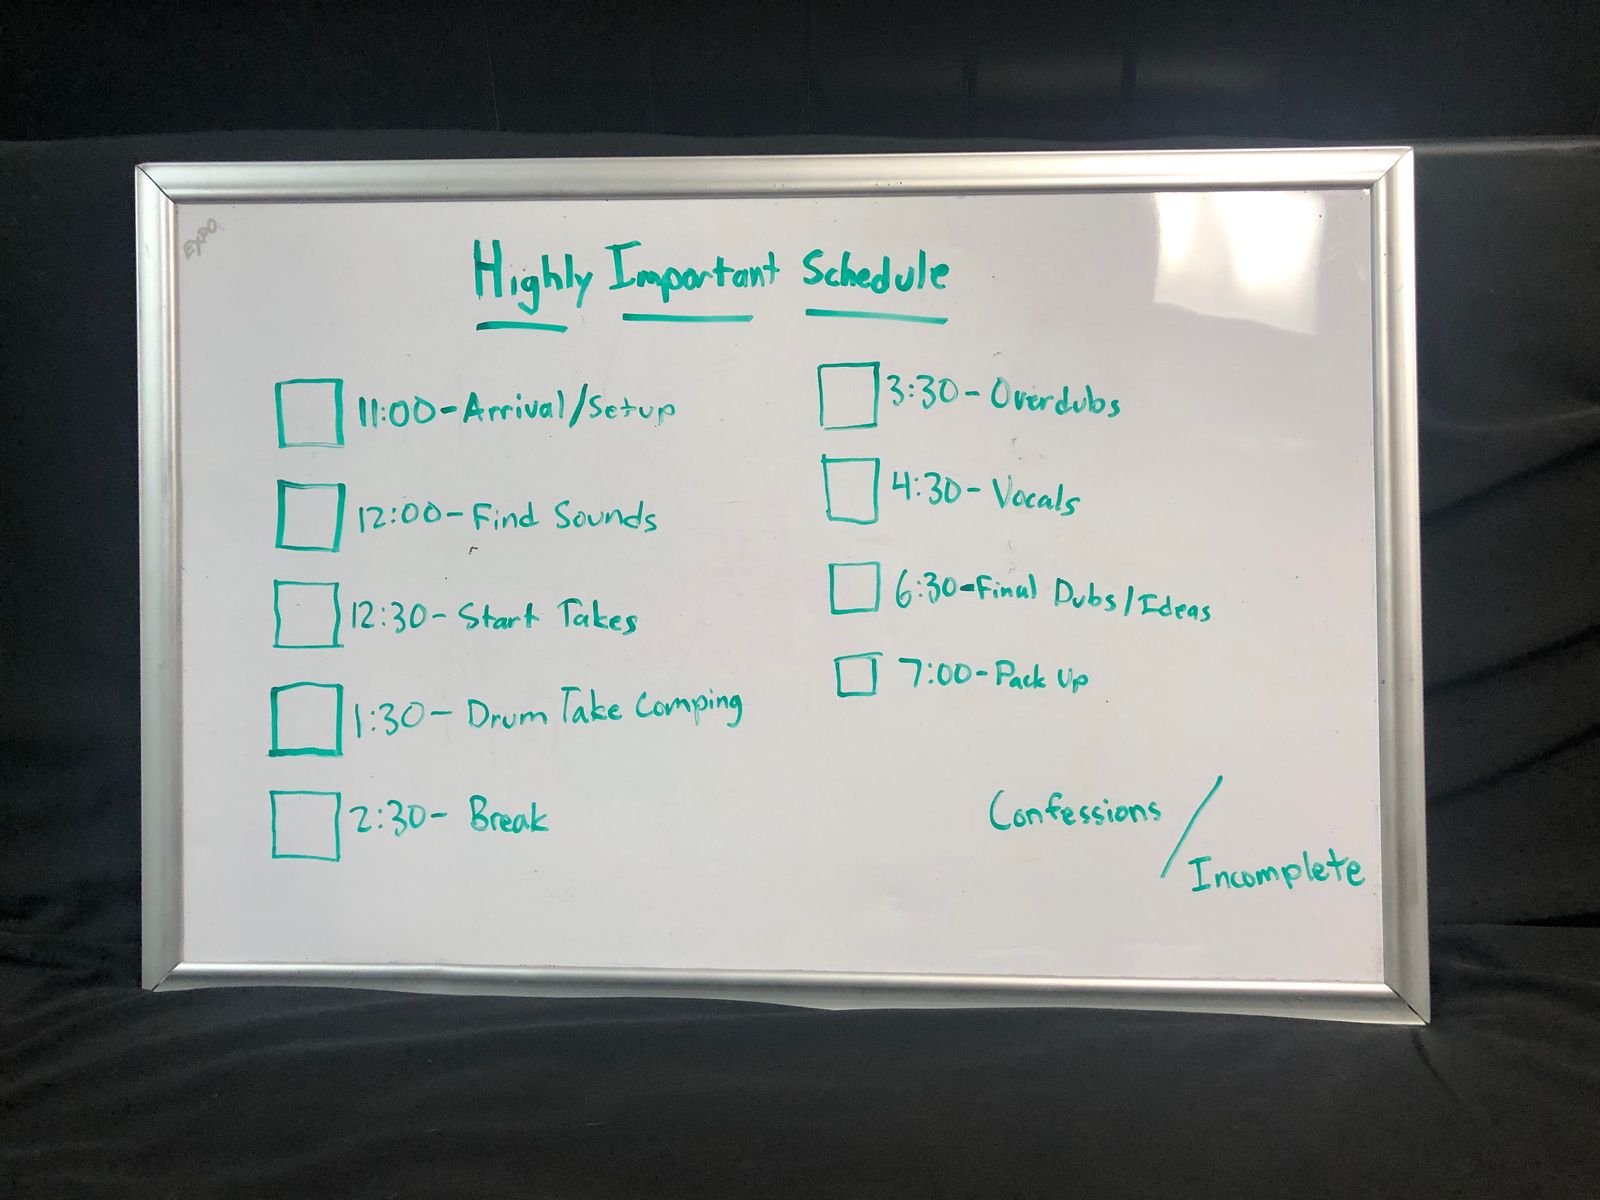 EXPO
Highly Important Schedule
11:00-Arrival/Setup
12:00-Find Sounds
12:30-Start Takes
1:30-Drum Take Comping
2:30-Break
3:30-Overdubs
4:30-Vocals
6:30-Final Dubs/Ideas
7:00-Pack Up
Confessions /
Incomplete